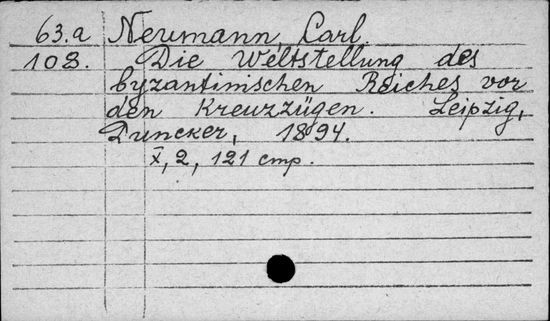 63.a Neumann, Carl.
108. Die Weltstellung des
byzantinischen Reiches vor
den Kreuzzügen. Leipzig,
Duncker, 1894.
X, 2, 121 стр.